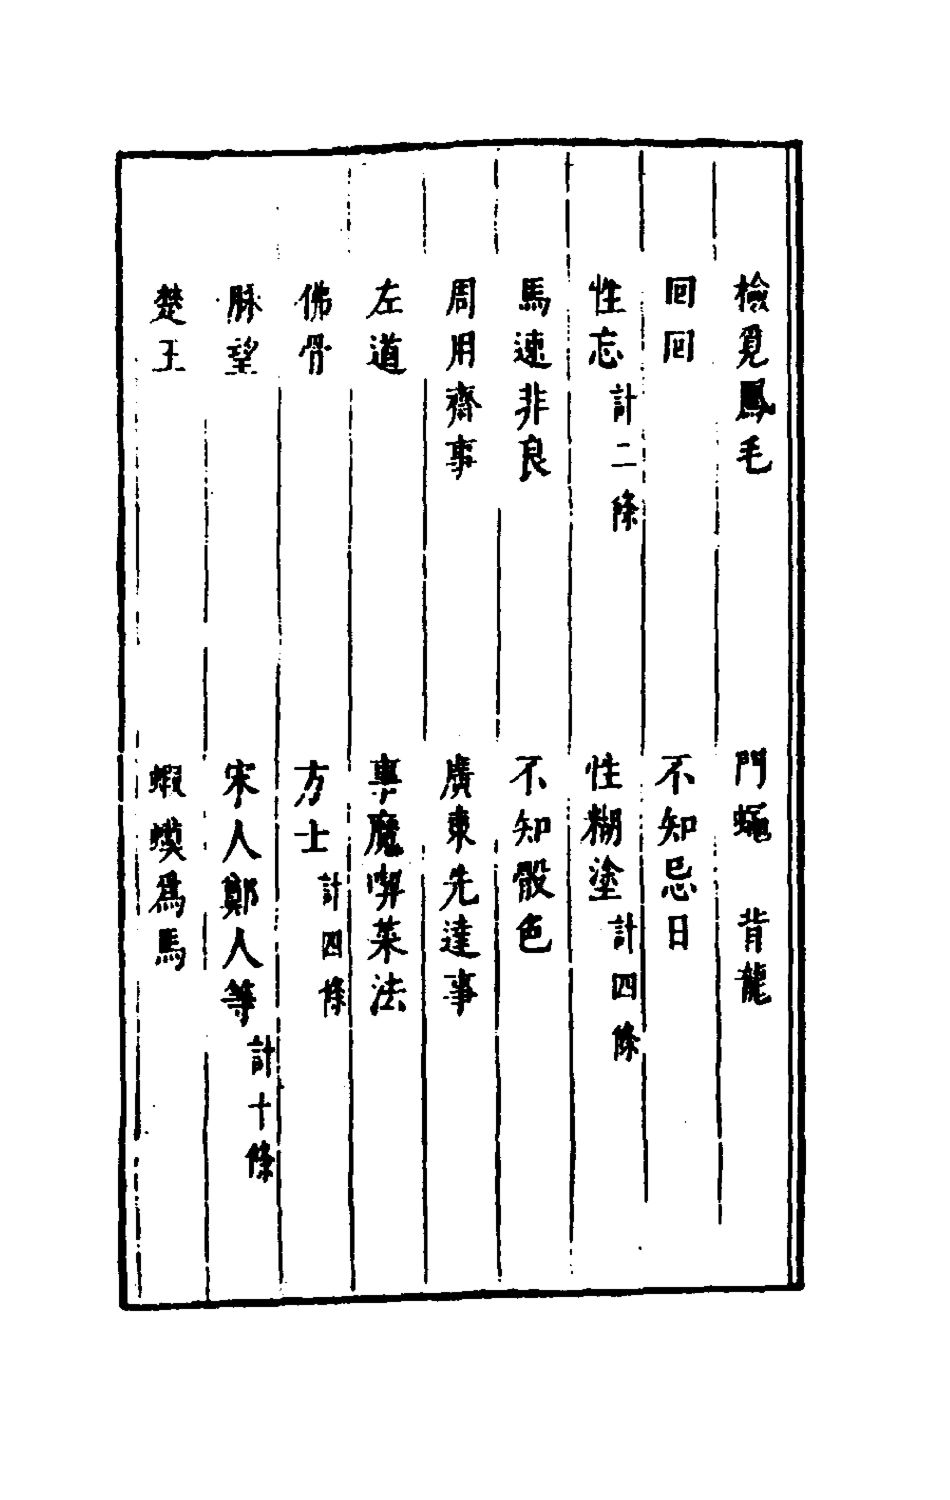 檢覓鳳毛　門蠅　背龍
回回　不知忌日
性忘計二條　性糊塗計四條
馬速非良　不知骰色
周用齋事　廣東先達事
左道　事魔喫菜法
佛骨　方士計四條
脉望　宋人鄭人等計十條
楚王　蝦蟆爲馬